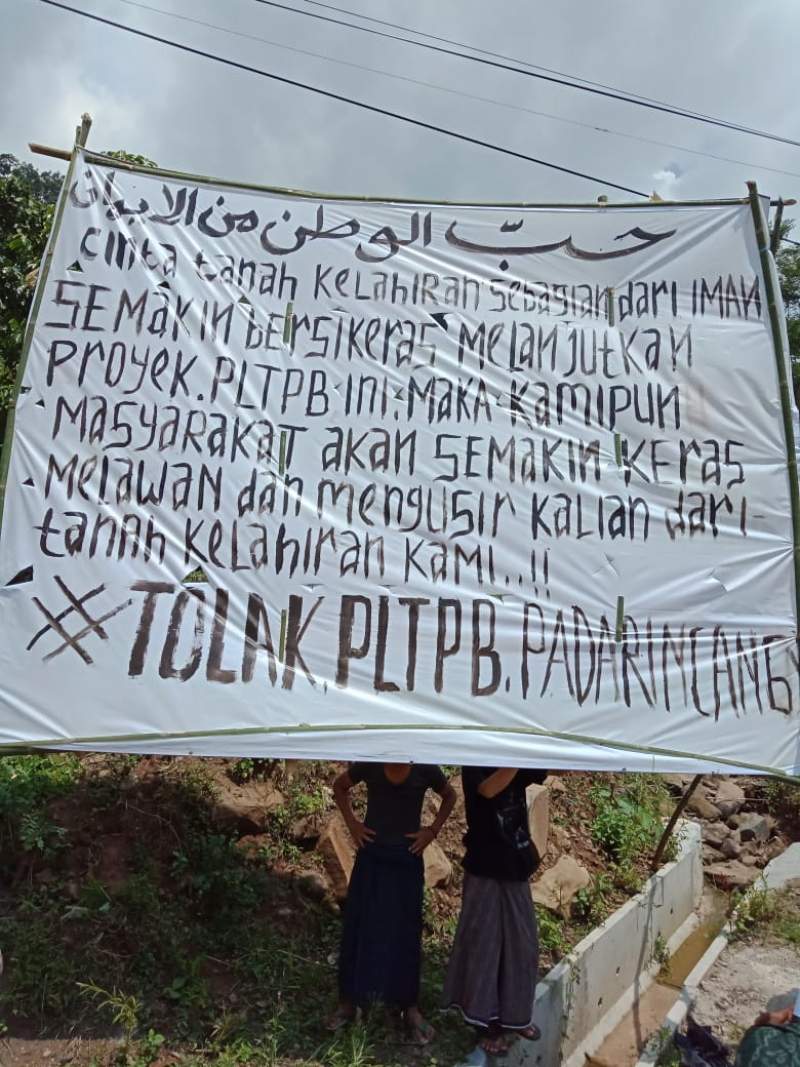 حبّ الوطن من الايمان
cinta tanah KELahiRan sebagian dari IMAN
SEMAKIN BERSIKeras MELANjUtKAN
PROYEK.PLTPB INI.MAKA KAMIPUN
MASYARAKAT AKAN SEMAKIN KERAS
MELAWAN dan mengusir KALIAN dari-
tanah KELahiran KAMI..!!
#TOLAK.PLTPB.PADARINCANG